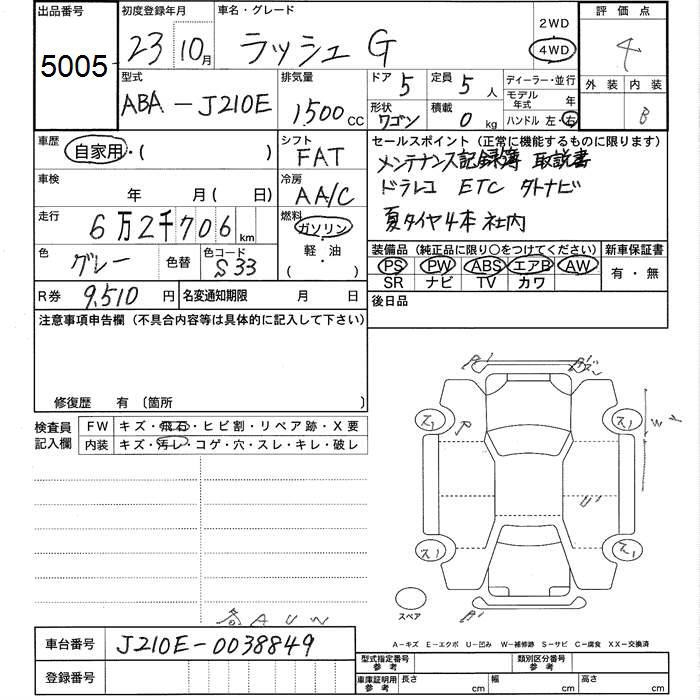 出品番号 初度登録年月 車名・グレード 2WD 評価点
5005 23 10月 ラッシュ G 4WD 4
型式 排気量 ドア 5 定員 5人 ディーラー・並行 外装 内装
ABA-J210E 1500 CC 形状 ワゴン 積載 0 kg モデル年式 年 B
ハンドル 左・右
車歴 シフト セールスポイント(正常に機能するものに限ります)
自家用・( ) FAT メンテナンス記録簿 取説書
車検 冷房 ドラレコ ETC 外ナビ
年 月(日) AA/C 夏タイヤ4本 社内
走行 燃料
6万2千706km ガソリン・軽・油( )
色 グレー 色替 色コード S33
装備品(純正品に限り○をつけてください) 新車保証書
PS PW ABS エアB AW 有・無
SR ナビ TV カワ
R券 9,510円 名変通知期限 月 日 後日品
注意事項申告欄(不具合内容等は具体的に記入して下さい)
修復歴 有 〔箇所 〕
検査員記入欄 FW キズ・飛石・ヒビ割・リペア跡・X要
内装 キズ・汚レ・コゲ・穴・スレ・キレ・破レ
B' B'ズレ
ス1 ア ス1 W Y
U'
ス1 ス1
スペア B'
各AUW
A-キズ E-エクボ U-凹み W-補修跡 S-サビ C-腐食 XX-交換済
車台番号 J210E-0038849
登録番号
型式指定番号 参考 類別区分番号 参考
車庫証明用 参考 長さ cm 幅 cm 高さ cm